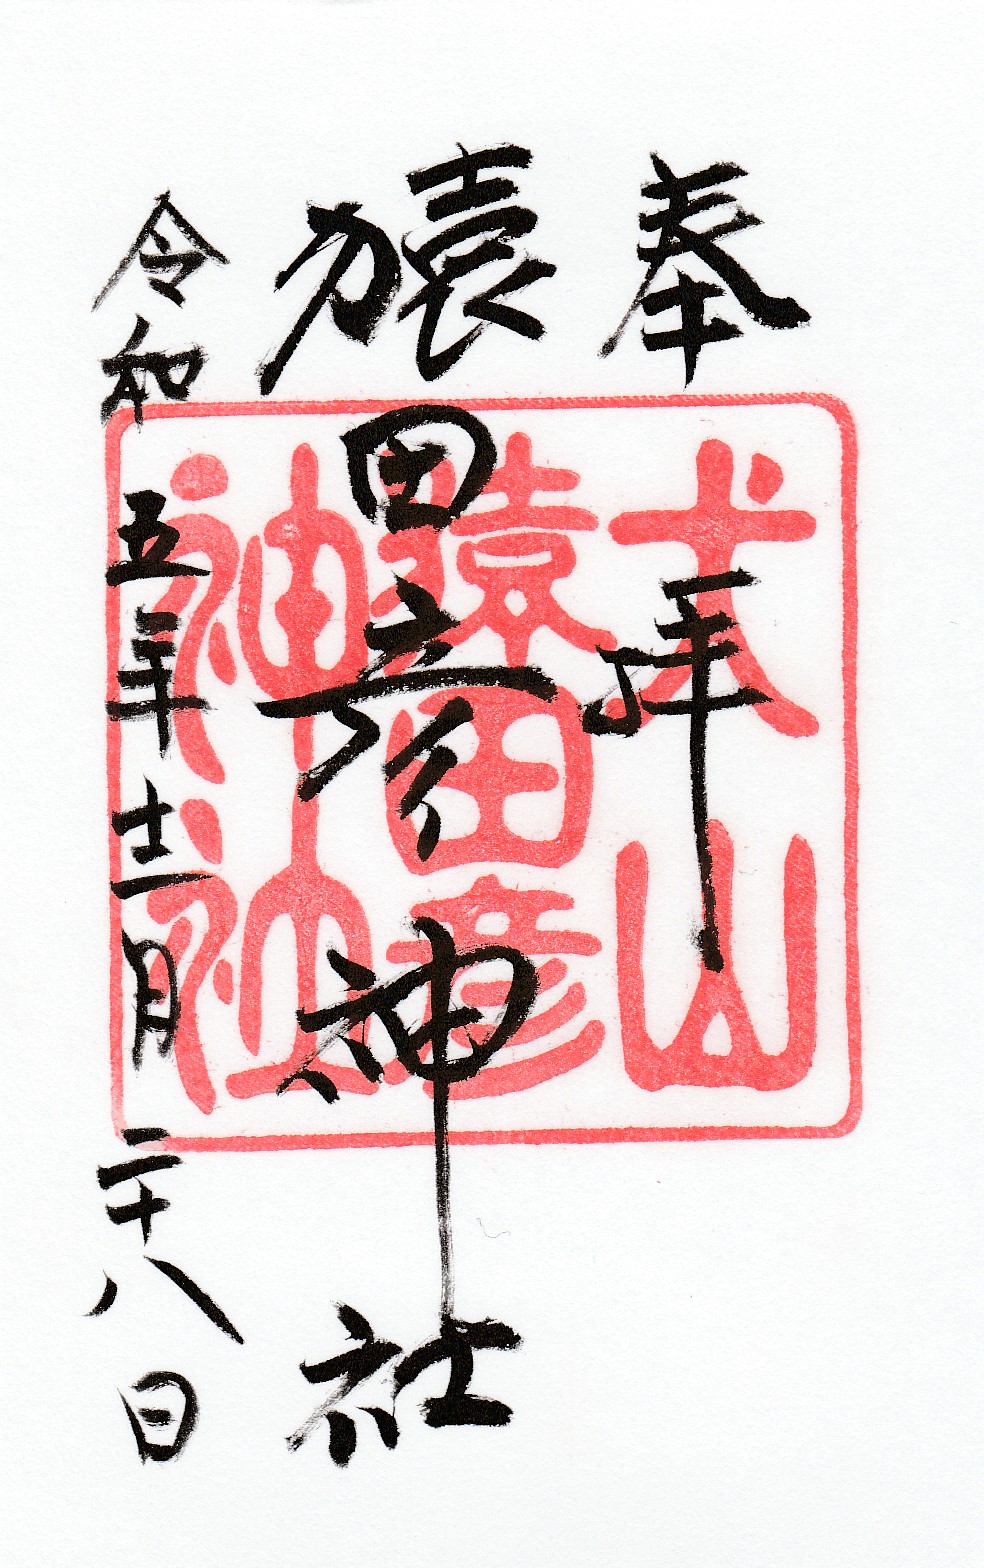 奉拝
猿田彦神社
令和五年十二月二十八日
犬山
猿田彦
神社